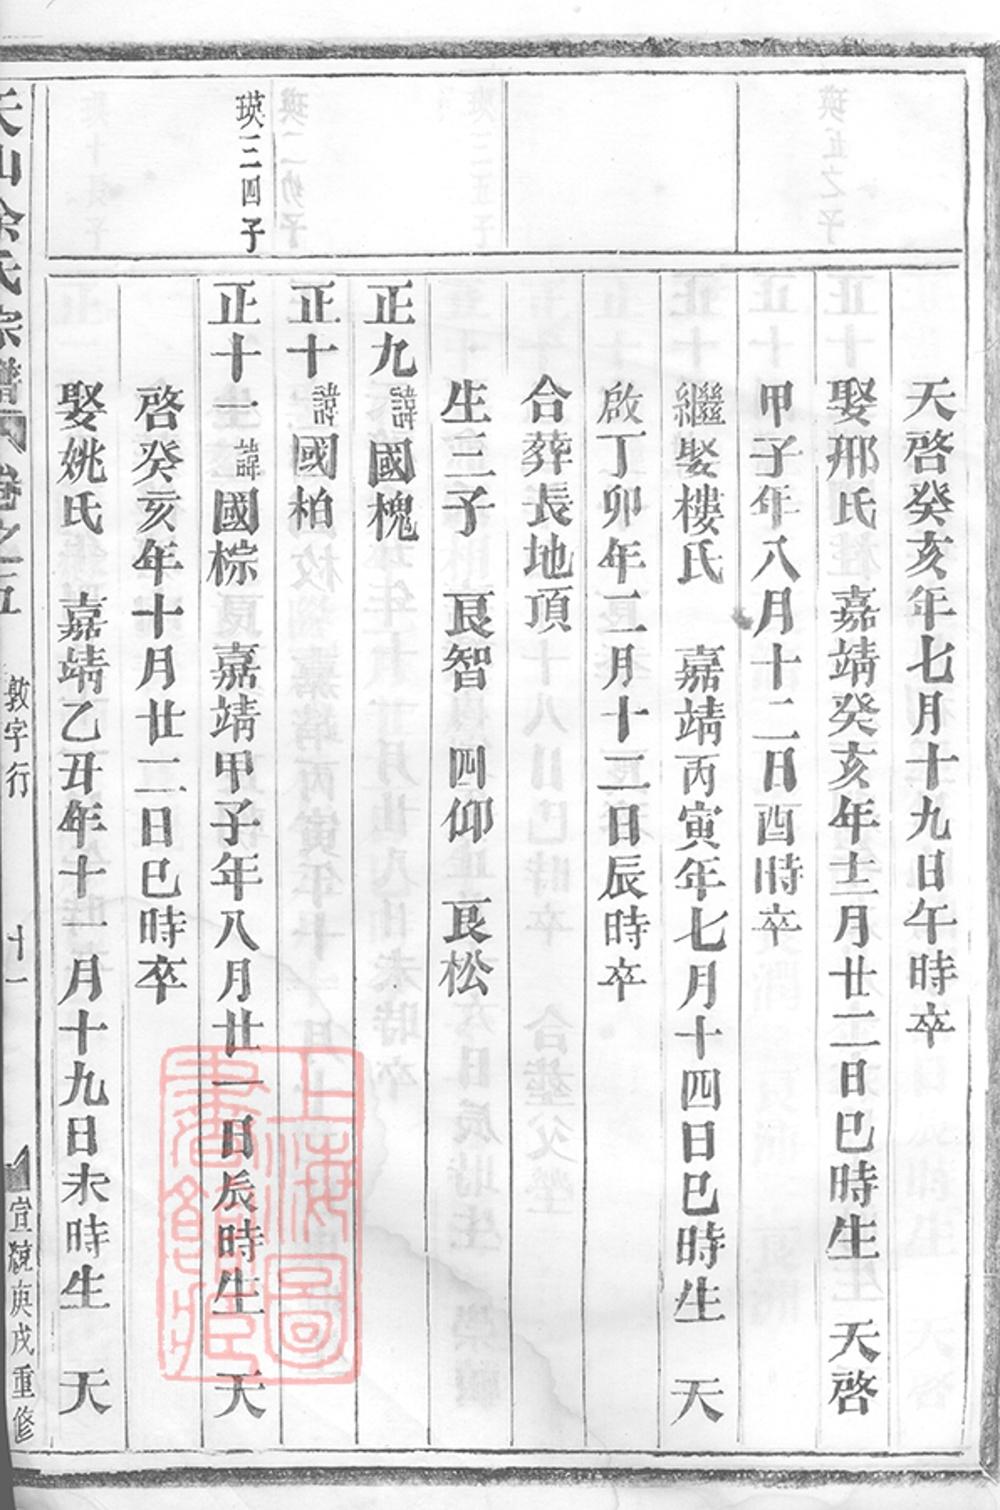 天啓癸亥年七月十九日午時卒
娶邢氏 嘉靖癸亥年十二月廿二日巳時生 天啓
甲子年八月十二日酉時卒
繼娶樓氏 嘉靖丙寅年七月十四日巳時生 天
啟丁卯年二月十二日辰時卒
合葬長地頂
生三子 良智 四仰 良松
正九諱國槐
正十諱國柏
瑛三四子
正十一諱國棕 嘉靖甲子年八月廿一日辰時生 天
啓癸亥年十月廿二日巳時卒
娶姚氏 嘉靖乙丑年十一月十九日未時生 天
天山余氏宗譜 卷之五 敦字行 十一 宣統庚戌重修
上海圖書館藏